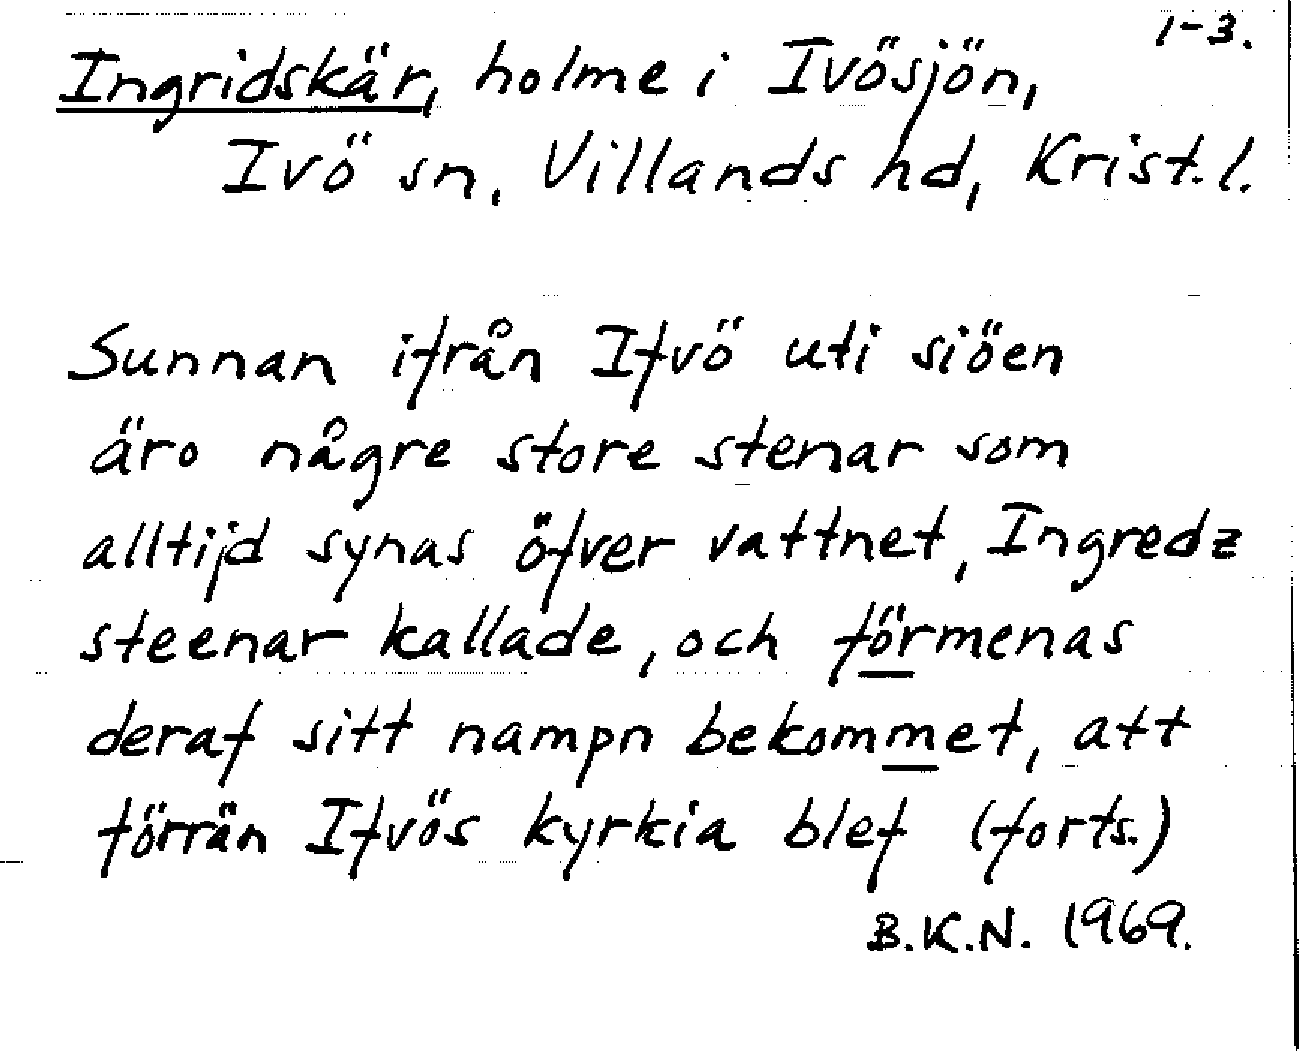 1-3.
Ingridskär, holme i Ivösjön,
Ivö sn, Villands hd, Krist.l.
Sunnan ifrån Ifvö uti siöen
äro någre store stenar som
alltijd synas öfver vattnet, Ingredz
steenar kallade, och förmenas
deraf sitt nampn bekommet, att
förrän Ifvös kyrkia blef (forts.)
B.K.N. 1969.